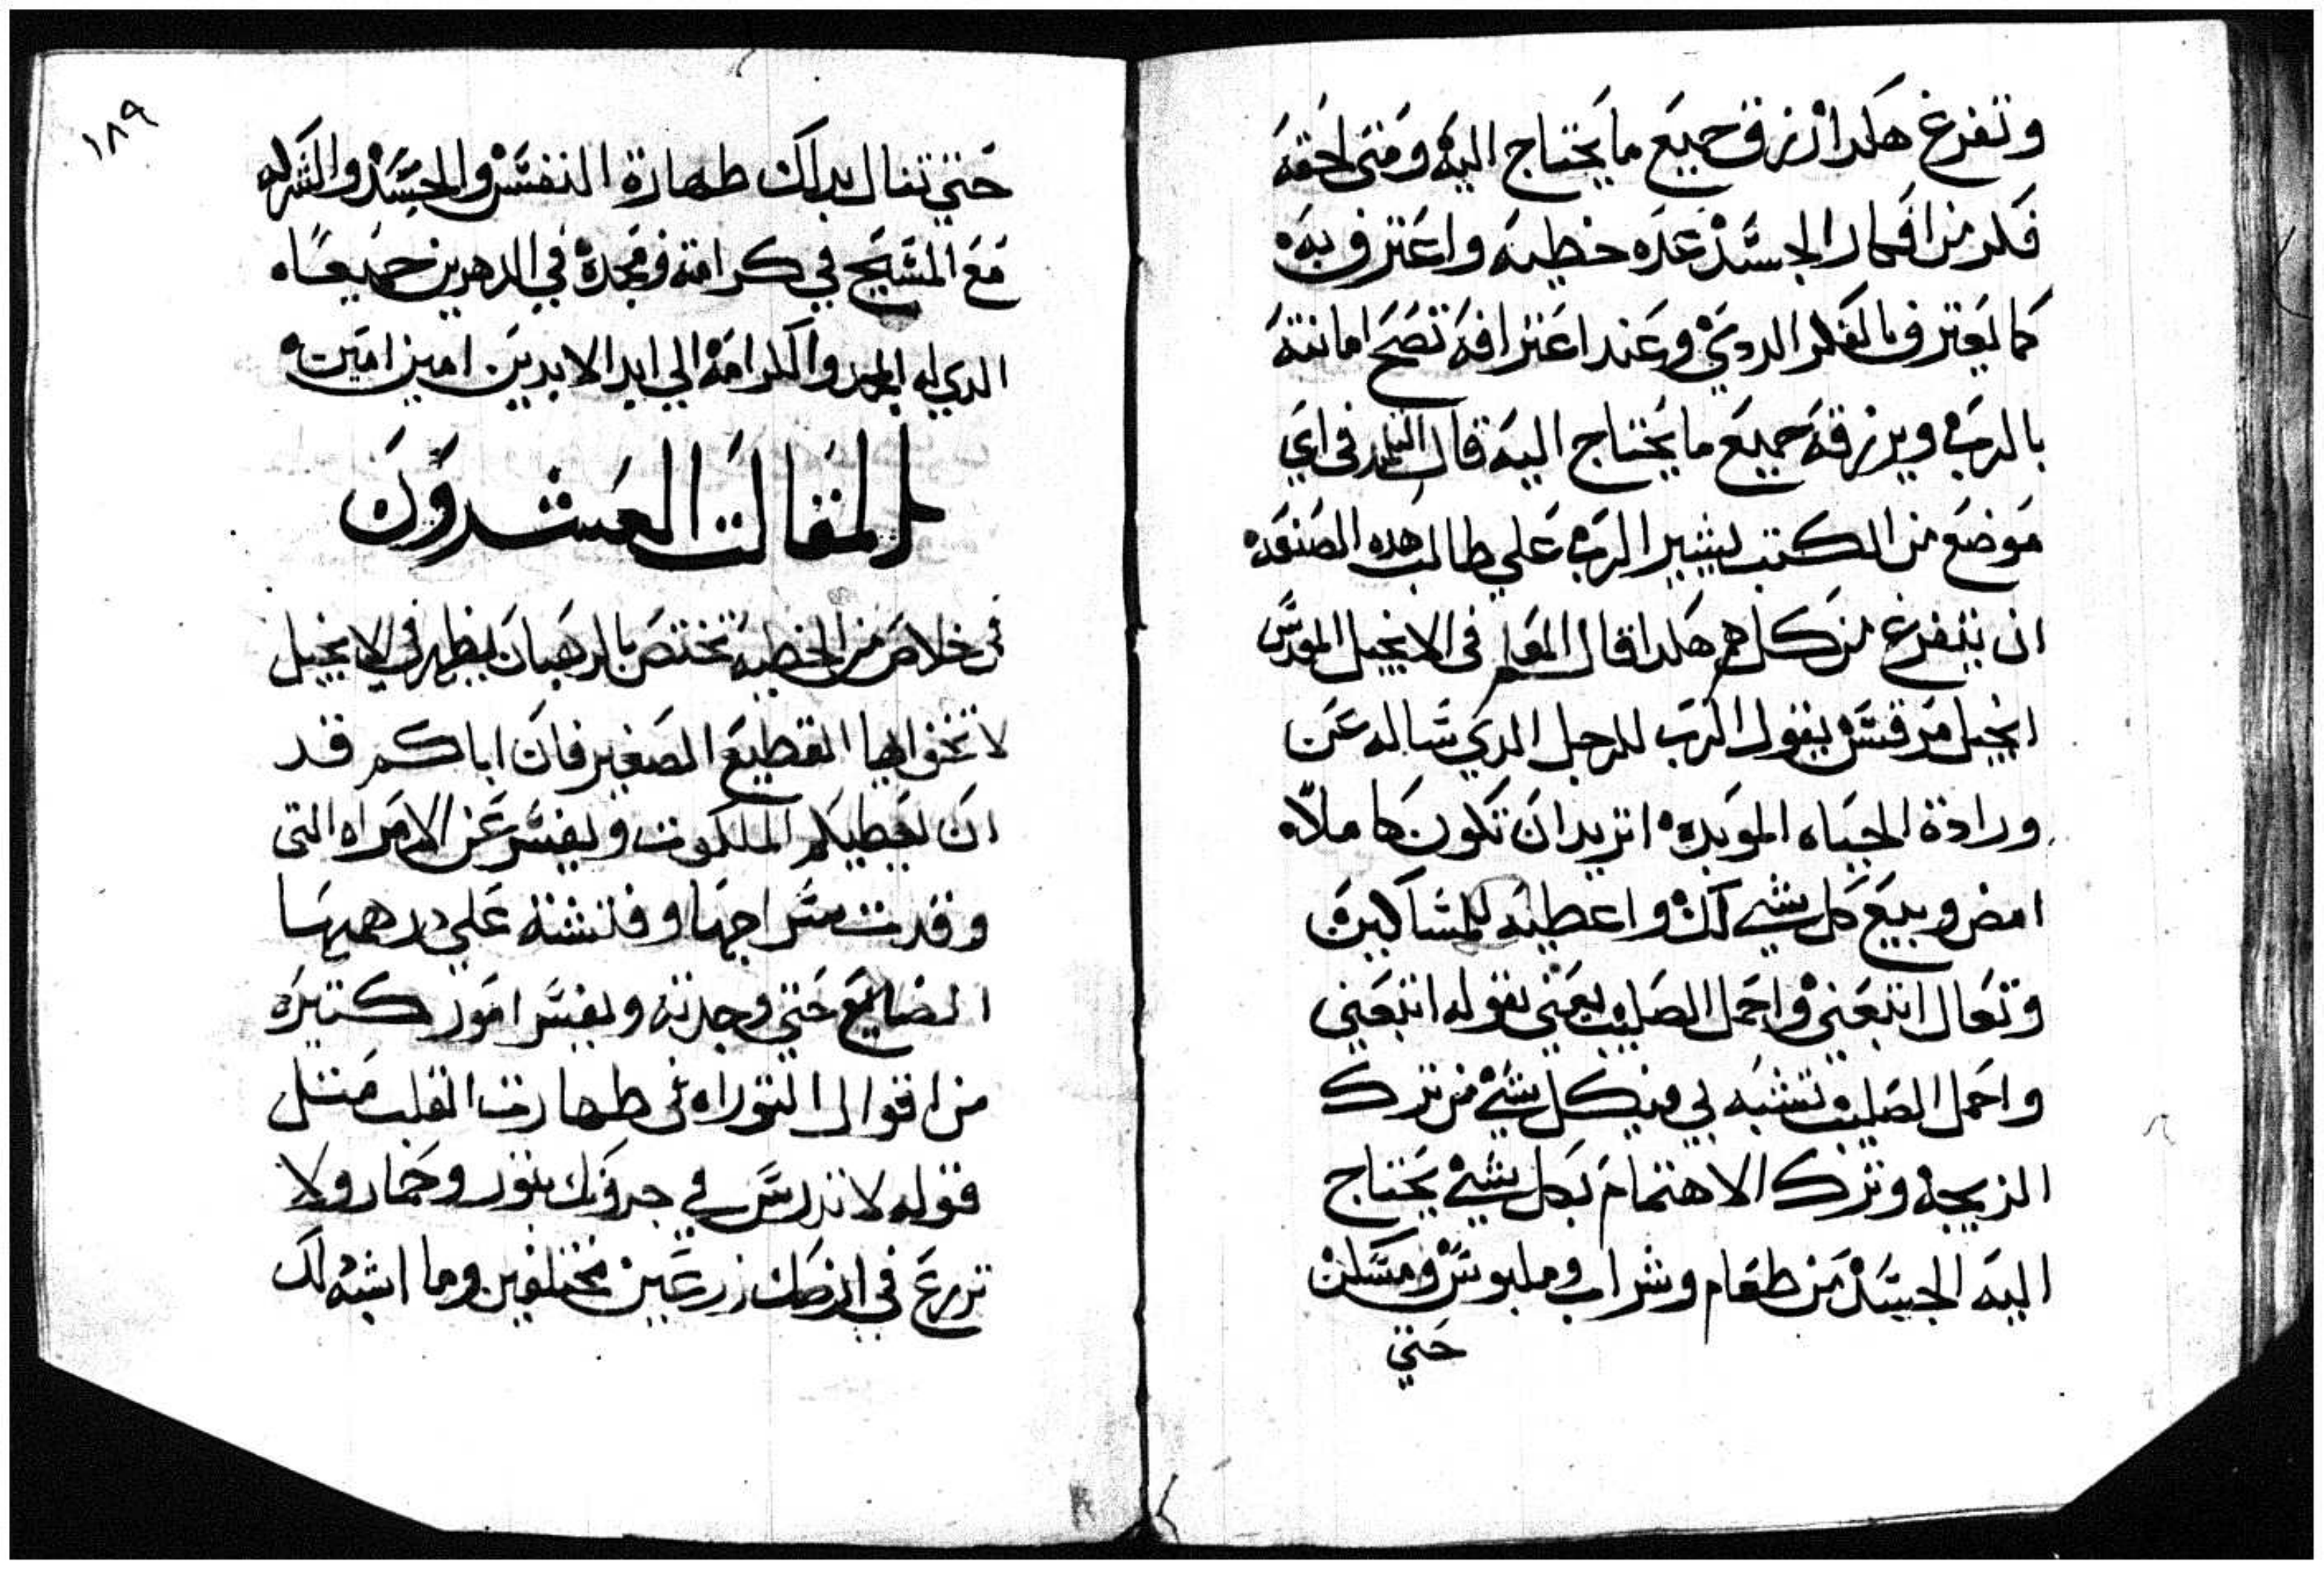 وتفرغ هكدا رزق جميع ما يحتاج اليه ومتى لحقه
فكر من افكار الجسد عده خطيه واعترف به
كما يعترف بالفكر الردي وعند اعترافه تصح امانته
بالرب ويرزقه جميع ما يحتاج اليه قال التلميد في اي
موضع من الكتب يشير الرب علي طالب هده الصنعه
ان يتفرغ من كل هم هكدا قال المعلم في الانجيل المقدس
انجيل مرقس يقول الرب للرجل الدي ساله عن
وراتة الحياه الموبده اتريد ان تكون كاملا
امض وبيع كل شي لك واعطيه للمساكين
وتعال اتبعني واحمل الصليب يعني بقوله اتبعني
واحمل الصليب تشبه بي في كل شي من ترك
الزيجه وترك الاهتمام بكل شي يحتاج
اليه الجسد من طعام وشراب وملبوس ومسكن
حتي
١٨٩
حتي تنال بدلك طهارة النفس والجسد والشركه
مع المسيح في كرامته ومجده في الدهرين جميعا
الدي له المجد والكرامه الي ابد الابدين امين امين
المقالت العشرون
في خلاص من الخطيه تختص بالرهبان يظهر في الانجيل
لا تخف ايها القطيع الصغير فان اباكم قد
ان يعطيكم الملكوت ويفسر عن الامراه التي
وقدت سراجها وفتشته علي درهمها
الضايع حتي وجدته ويفسر امور كتيره
من اقوال التوراه في طهارت القلب متل
قوله لا تدرس في جرونك بتور وحمار ولا
تزرع في ارضك زرعين مختلفين وما اشبه لك